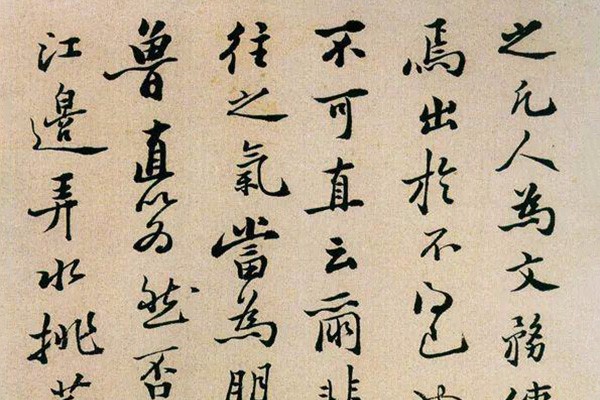 之凡人為文務使
焉出於不得已
不可直云爾非
往之氣當為朋
魯直以為然否
江邊弄水挑菜